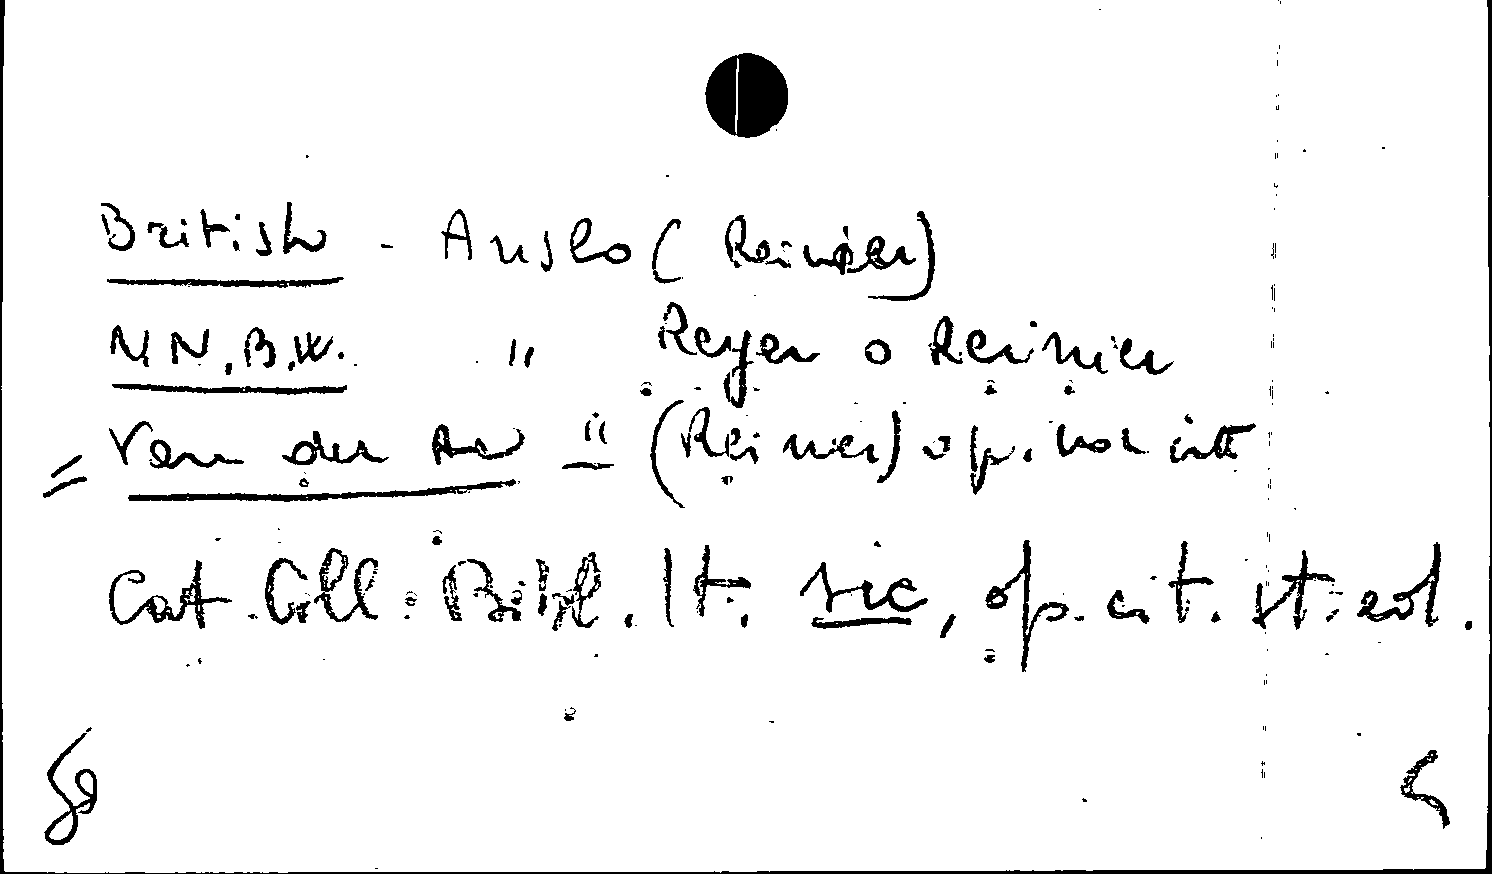 British - Anslo ( Reinier)
N N. B. W. " Reyer o Reinier
= Van der Aa " (Reinier) op. non citt
Cat. Coll. Bibl. It. sic, op. cit. st. ed.